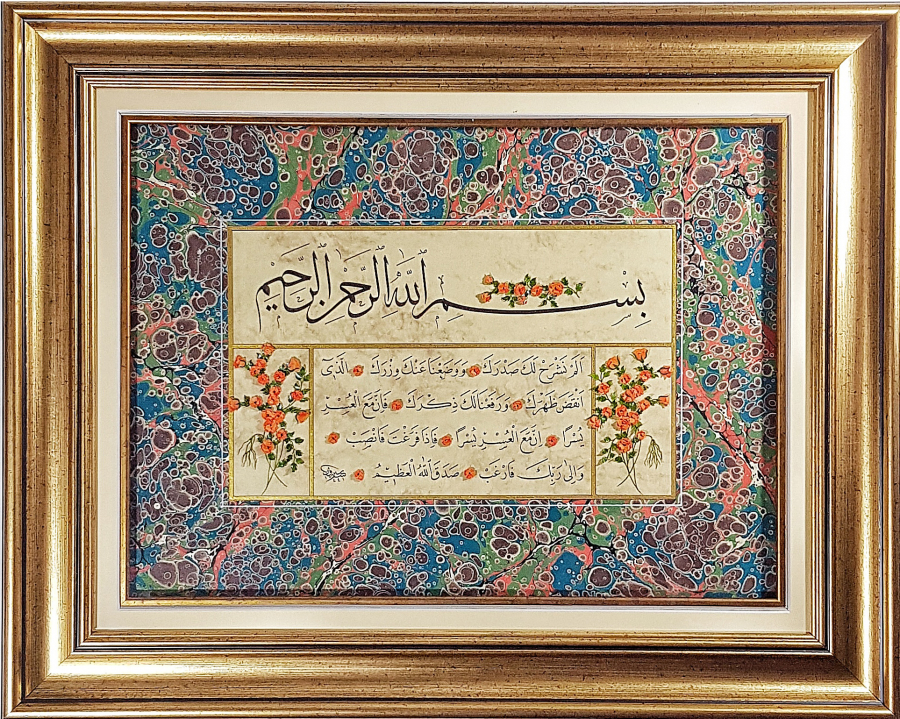 بِسْمِ اللّٰهِ الرَّحْمٰنِ الرَّحِيْمِ
اَلَمْ نَشْرَحْ لَكَ صَدْرَكَ وَوَضَعْنَا عَنْكَ وِزْرَكَ اَلَّذٖى
اَنْقَضَ ظَهْرَكَ وَرَفَعْنَا لَكَ ذِكْرَكَ فَاِنَّ مَعَ الْعُسْرِ
يُسْرًا اِنَّ مَعَ الْعُسْرِ يُسْرًا فَاِذَا فَرَغْتَ فَانْصَبْ
وَاِلٰى رَبِّكَ فَارْغَبْ صَدَقَ اللّٰهُ الْعَظٖيمُ